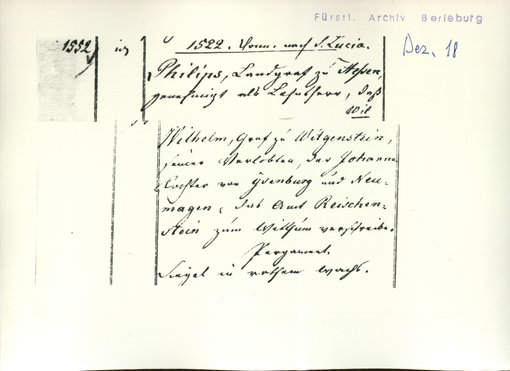 Fürstl. Archiv Berleburg
1552
1522. Donn. nach S. Lucia.
Dez. 18
Philips, Landgraf zu Hessen,
genehmigt als Lehnsherr, daß
Wil
Wilhelm, Graf zu Witgenstein,
seiner Verlobten, der Johanna
Tochter von Ysenburg und Neu-
magen, das Amt Reischen-
stein zum Witthum verschreibe.
Pergament.
Siegel in rothem Wachs.